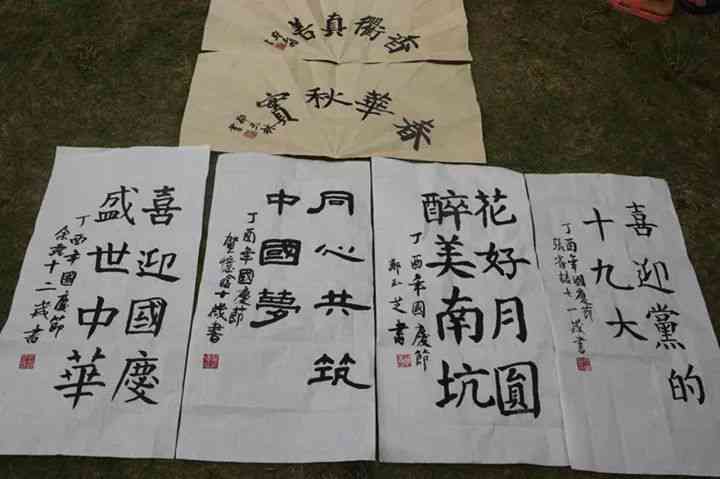 真
春華秋實
喜迎國慶
盛世中華
丁酉年國慶節
十二歲書
同心共筑
中國夢
丁酉年國慶節
賀憶 歲書
花好月圓
醉美南坑
丁酉年國慶節
鄭玉芝書
喜迎黨的
十九大
丁酉年國慶節
十一歲書